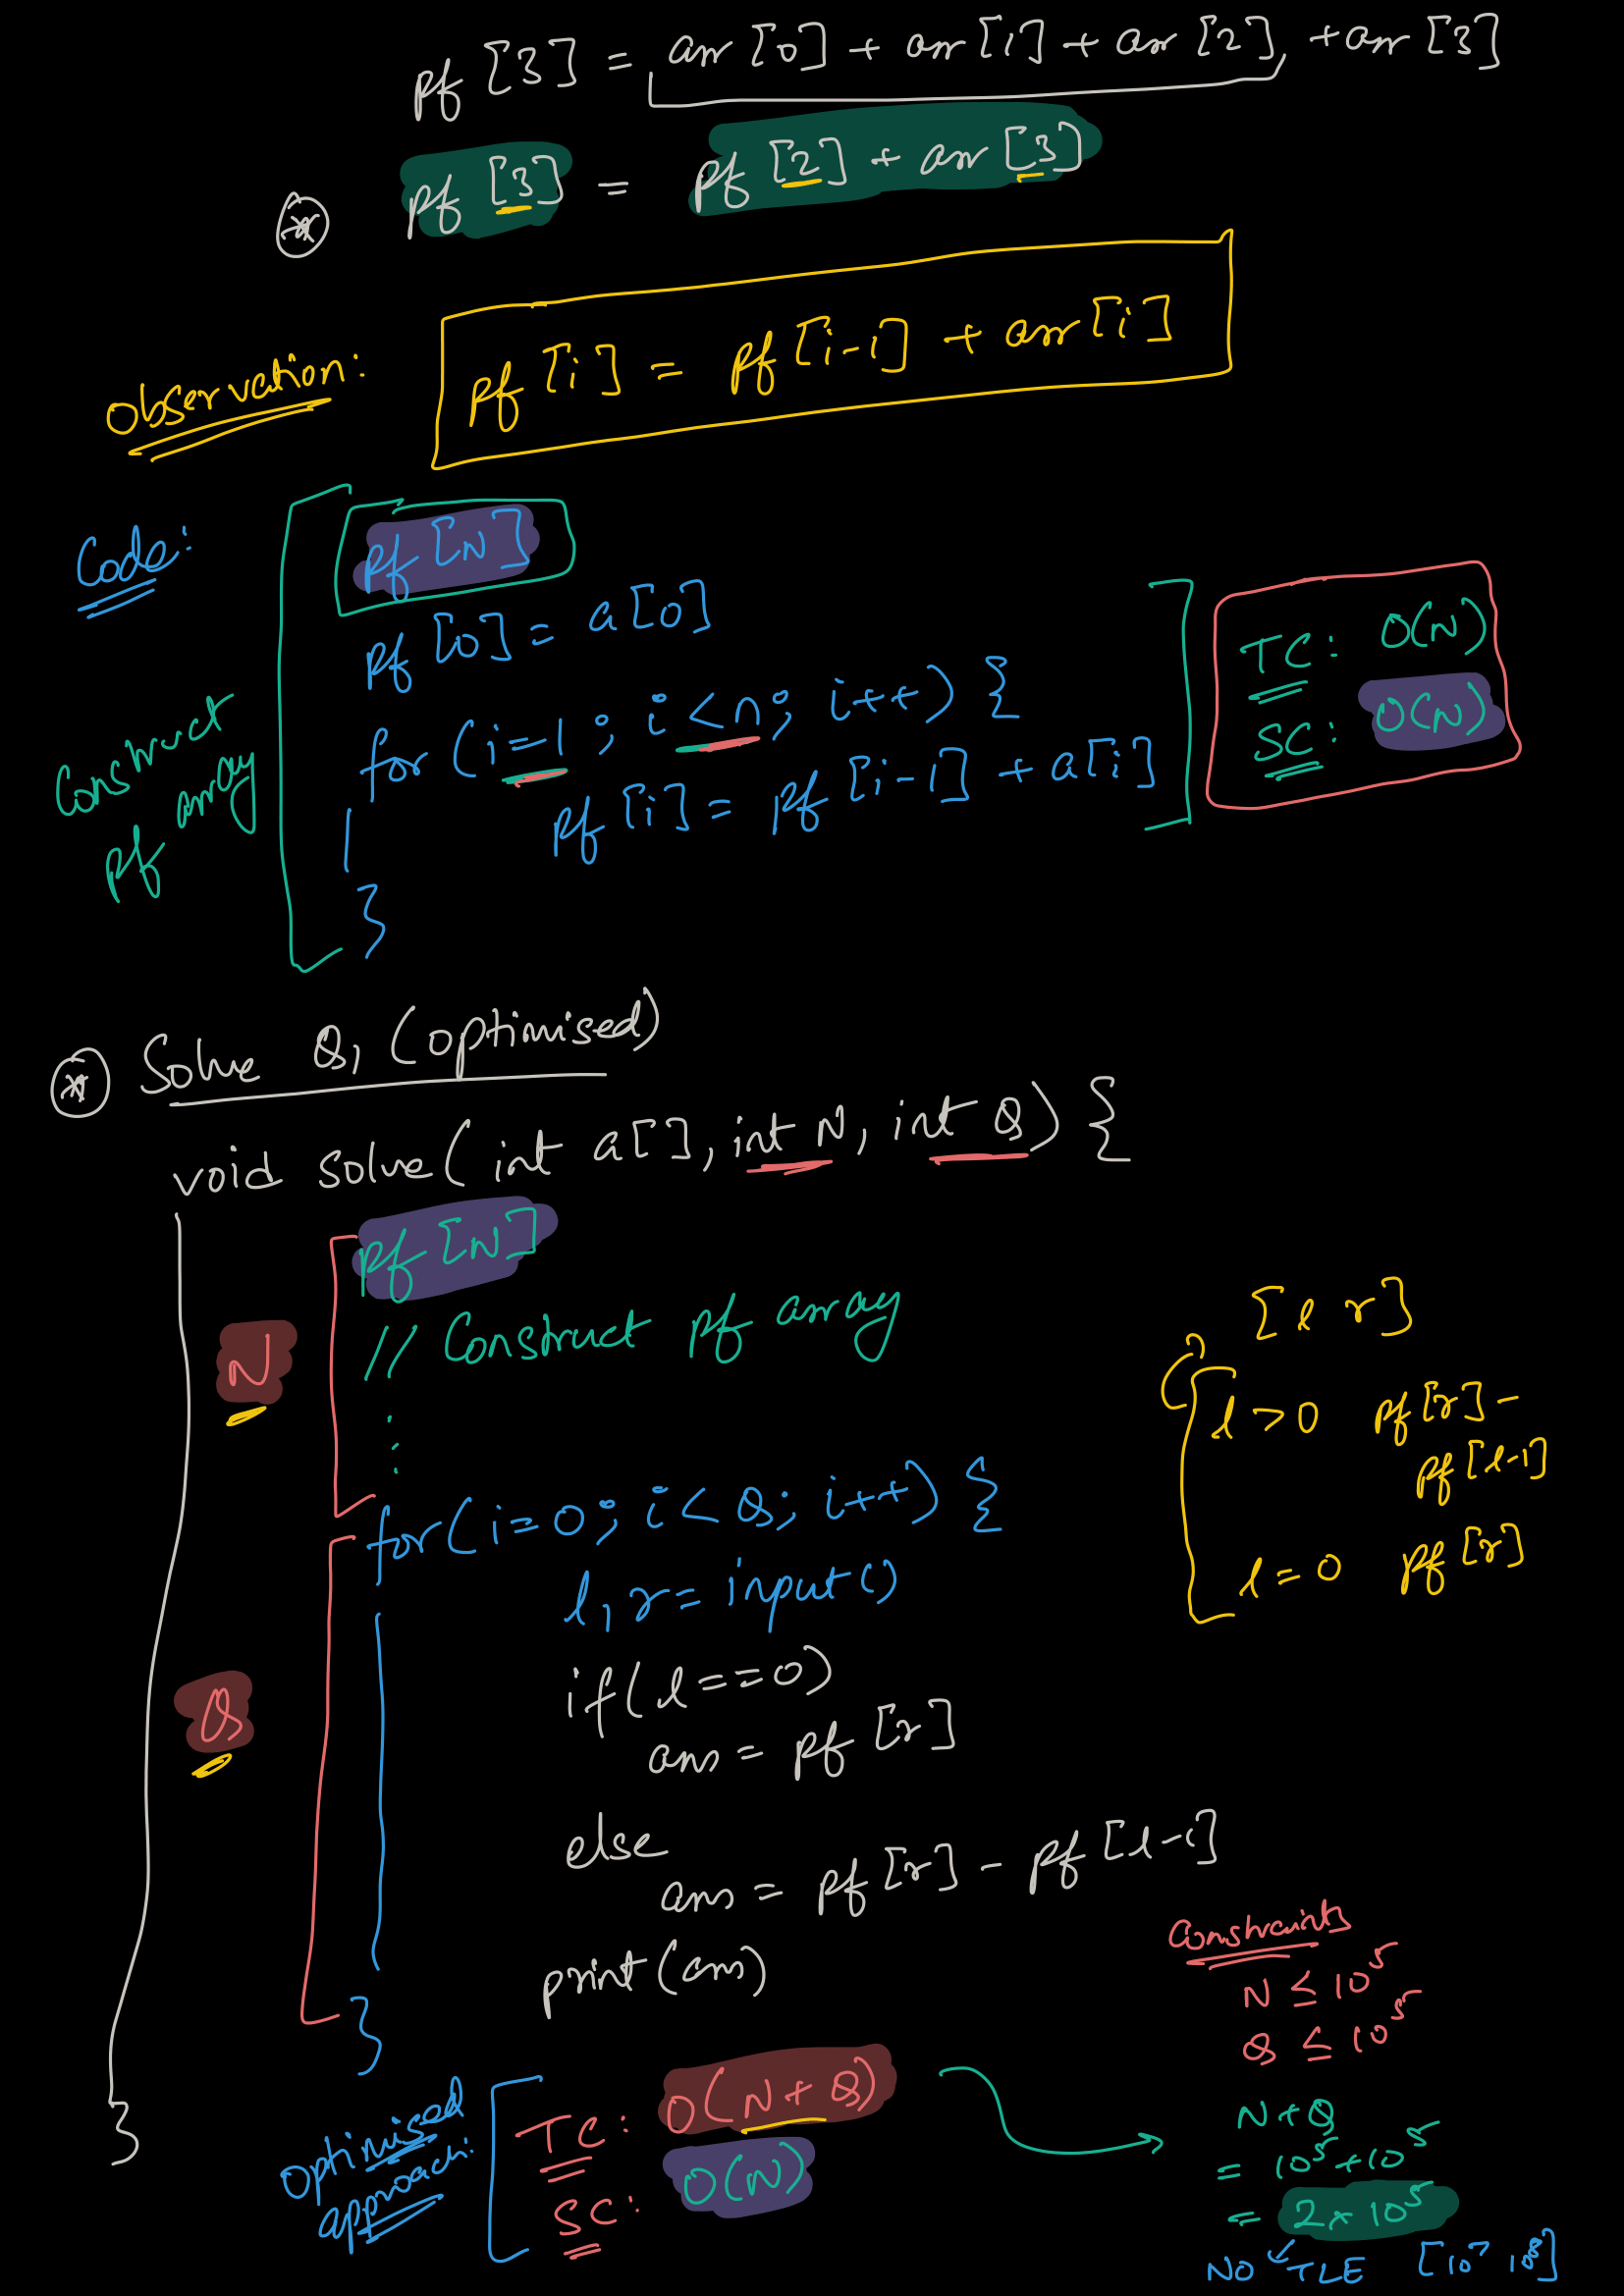 pf [3] = arr [0] + arr [1] + arr [2] + arr [3]
* pf [3] = pf [2] + arr [3]
Observation: pf [i] = pf [i-1] + arr [i]
Code: pf [N]
pf [0] = a[0]
for (i=1 ; i<n ; i++) {
pf [i] = pf [i-1] + a[i]
}
Construct
pf array
TC : O(N)
SC : O(N)
* Solve Q1 (optimised)
void solve( int a[], int N, int Q) {
pf [N]
// Construct pf array
:
N
for(i=0; i<Q; i++) {
l, r = input()
if(l==0)
ans = pf [r]
else
ans = pf [r] - pf [l-1]
print(ans)
}
Q
}
[l r]
l > 0 pf [r] -
pf [l-1]
l = 0 pf [r]
Optimised
approach:
TC : O(N + Q)
SC : O(N)
Constraints
N ≤ 10^5
Q ≤ 10^5
N + Q
= 10^5 + 10^5
= 2 x 10^5
NO TLE [10^7 10^8]